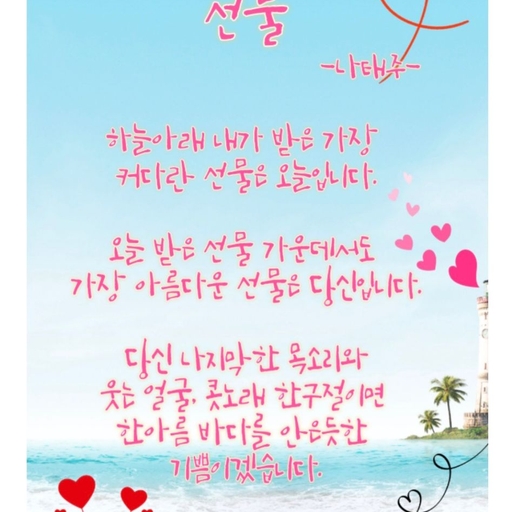 선물
-나태주-
하늘아래 내가 받은 가장
커다란 선물은 오늘입니다.
오늘 받은 선물 가운데서도
가장 아름다운 선물은 당신입니다.
당신 나지막한 목소리와
웃는 얼굴, 콧노래 한구절이면
한아름 바다를 안은듯한
기쁨이겠습니다.